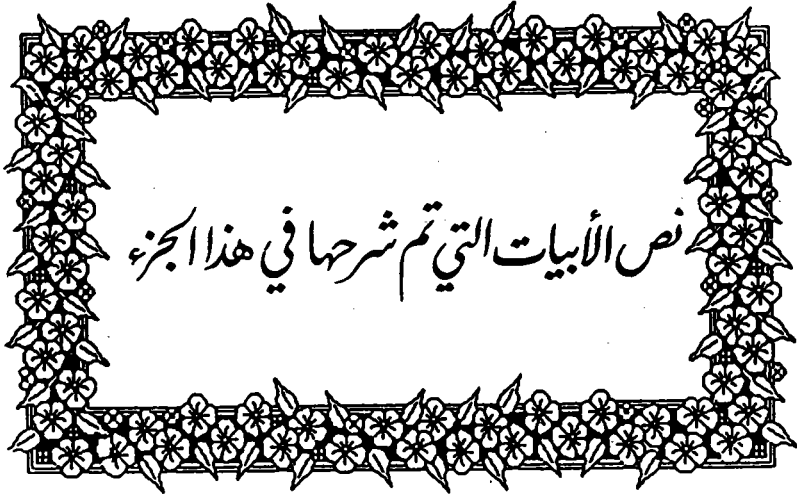 نص الأبيات التي تم شرحها في هذا الجزء